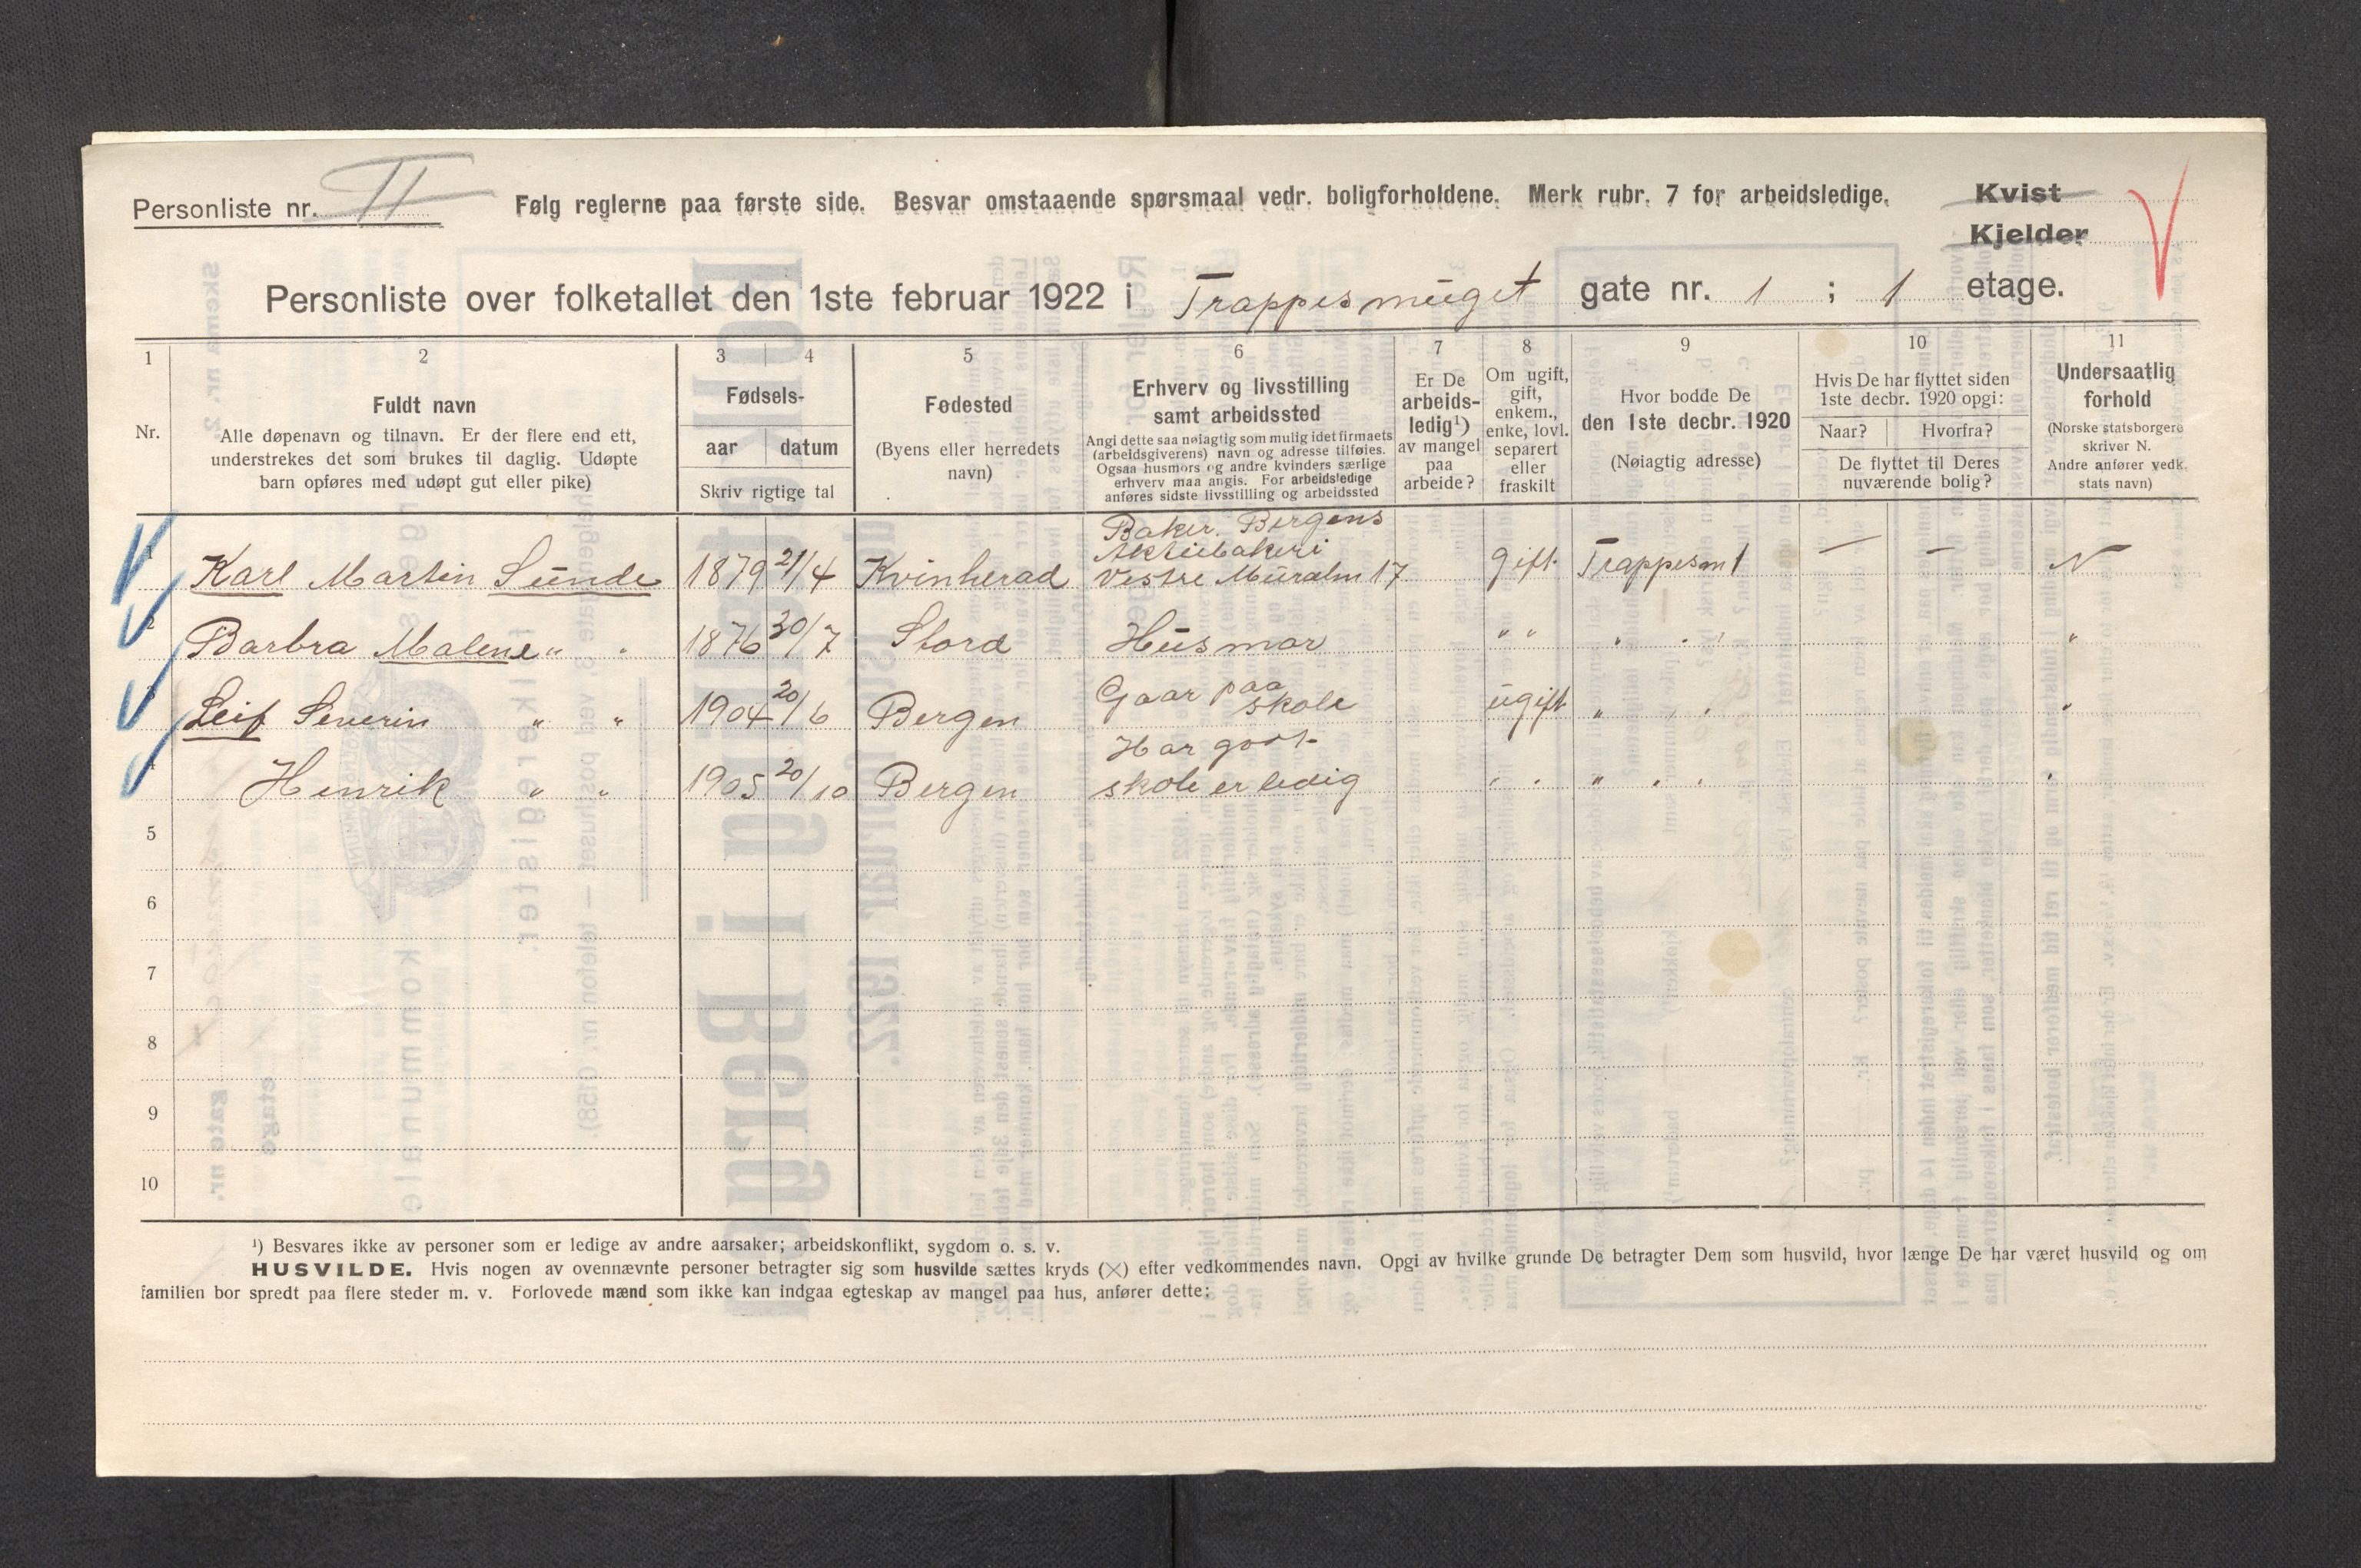 Personliste nr. II
Følg reglerne paa første side. Besvar omstaaende spørsmaal vedr. boligforholdene. Merk rubr. 7 for arbeidsledige.
Kvist
Kjelder
Personliste over folketallet den 1ste februar 1922 i Trappesmuget gate nr. 1 ; 1 etage.
1 2 3 4 5 6 7 8 9 10 11
Nr.
Fuldt navn
Alle døpenavn og tilnavn. Er der flere end ett,
understrekes det som brukes til daglig. Udøpte
barn opføres med udøpt gut eller pike)
Fødsels-
aar datum
Skriv rigtige tal
Fødested
(Byens eller herredets
navn)
Erhverv og livsstilling
samt arbeidssted
Angi dette saa nøiagtig som mulig idet firmaets
(arbeidsgiverens) navn og adresse tilføies.
Ogsaa husmors og andre kvinders særlige
erhverv maa angis. For arbeidsledige
anføres sidste livsstilling og arbeidssted
Er De
arbeids-
ledig¹)
av mangel
paa
arbeide?
Om ugift,
gift,
enkem.,
enke, lovl.
separert
eller
fraskilt
Hvor bodde De
den 1ste decbr. 1920
(Nøiagtig adresse)
Hvis De har flyttet siden
1ste decbr. 1920 opgi:
Naar? Hvorfra?
De flyttet til Deres
nuværende bolig?
Undersaatlig
forhold
(Norske statsborgere
skriver N.
Andre anfører vedk.
stats navn)
Baker. Bergens
Aktiebakeri
Karl Martin Sunde 1879 21/4 Kvinherad Vestre Muralm 17 gift Trappesm 1 — — N
Barbra Malene " " 1876 30/7 Stord Husmor " " " " " "
Gaar paa
Leif Severin " " 1904 20/6 Bergen skole ugift " " " "
Har gaat
Henrik " " 1905 20/10 Bergen skole er ledig " " " " " "
5
6
7
8
9
10
¹) Besvares ikke av personer som er ledige av andre aarsaker; arbeidskonflikt, sygdom o. s. v.
HUSVILDE. Hvis nogen av ovennævnte personer betragter sig som husvilde sættes kryds (×) efter vedkommendes navn. Opgi av hvilke grunde De betragter Dem som husvild, hvor længe De har været husvild og om
familien bor spredt paa flere steder m. v. Forlovede mænd som ikke kan indgaa egteskap av mangel paa hus, anfører dette: